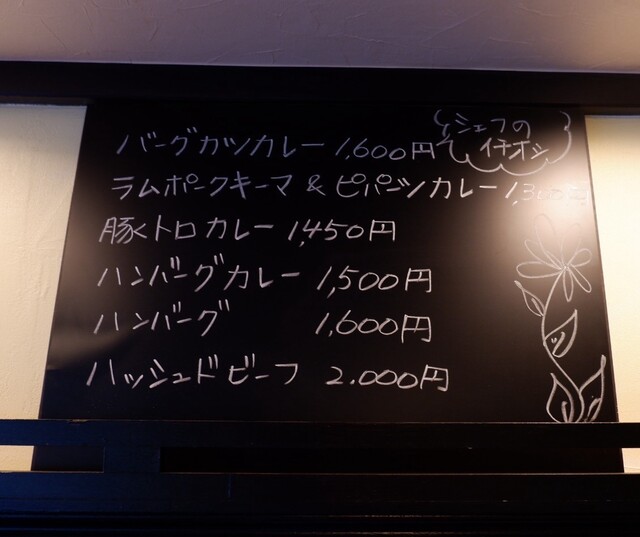 バーグカツカレー 1,600円
シェフの
イチオシ
ラムポークキーマ & ピパーツカレー
豚トロカレー 1,450円
ハンバーグカレー 1,500円
ハンバーグ 1,600円
ハッシュドビーフ 2.000円